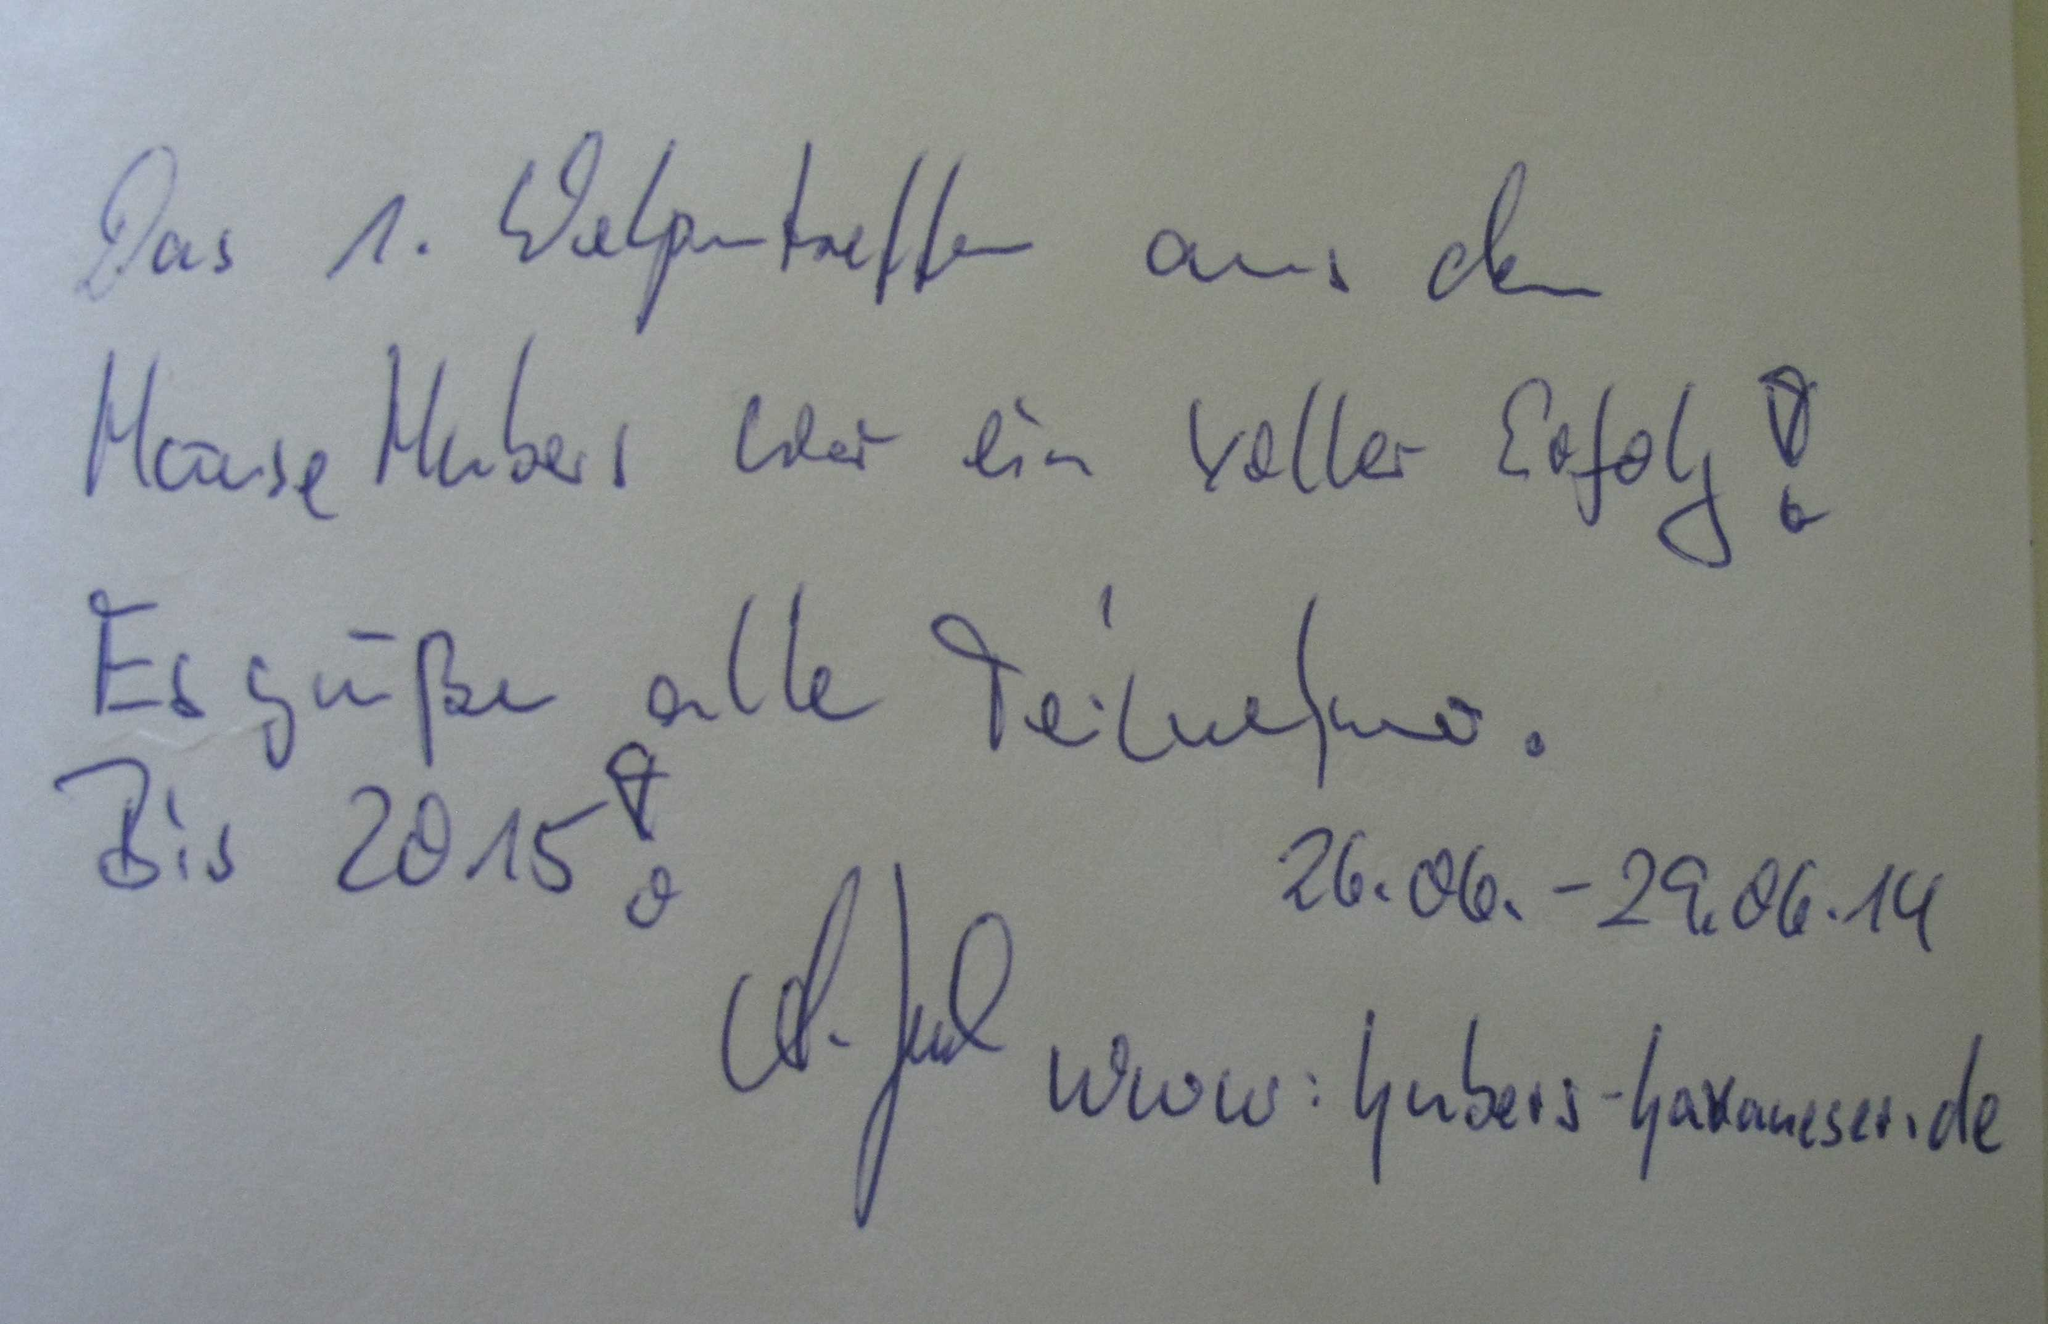 Das 1. Welpentreffen aus dem
Hause Hubers war ein voller Erfolg!
Es güßen alle Teilnehmer.
Bis 2015!
26.06. - 29.06.14
www: hubers-havaneser.de